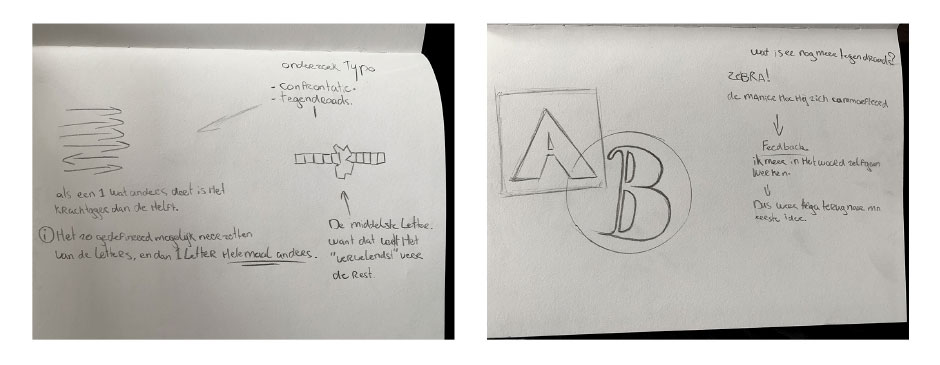 onderzoek Typo
- confrontatie.
- tegendraads.
als een 1 wat anders doet is Het
krachtiger dan de Helft.
i Het zo gedefineerd mogelijk neerzetten
van de Letters, en dan 1 Letter Helemaal anders.
De middelste Letter.
want dat voelt Het
"vervelendst" voor
de Rest.
wat is er nog meer tegendraads?
ZEBRA!
de manier hoe Hij zich camoufleerd
A
B
Feedback.
ik meer in Het woord zelf gaan
werken.
Dus weer terug naar mn
eerste idee.